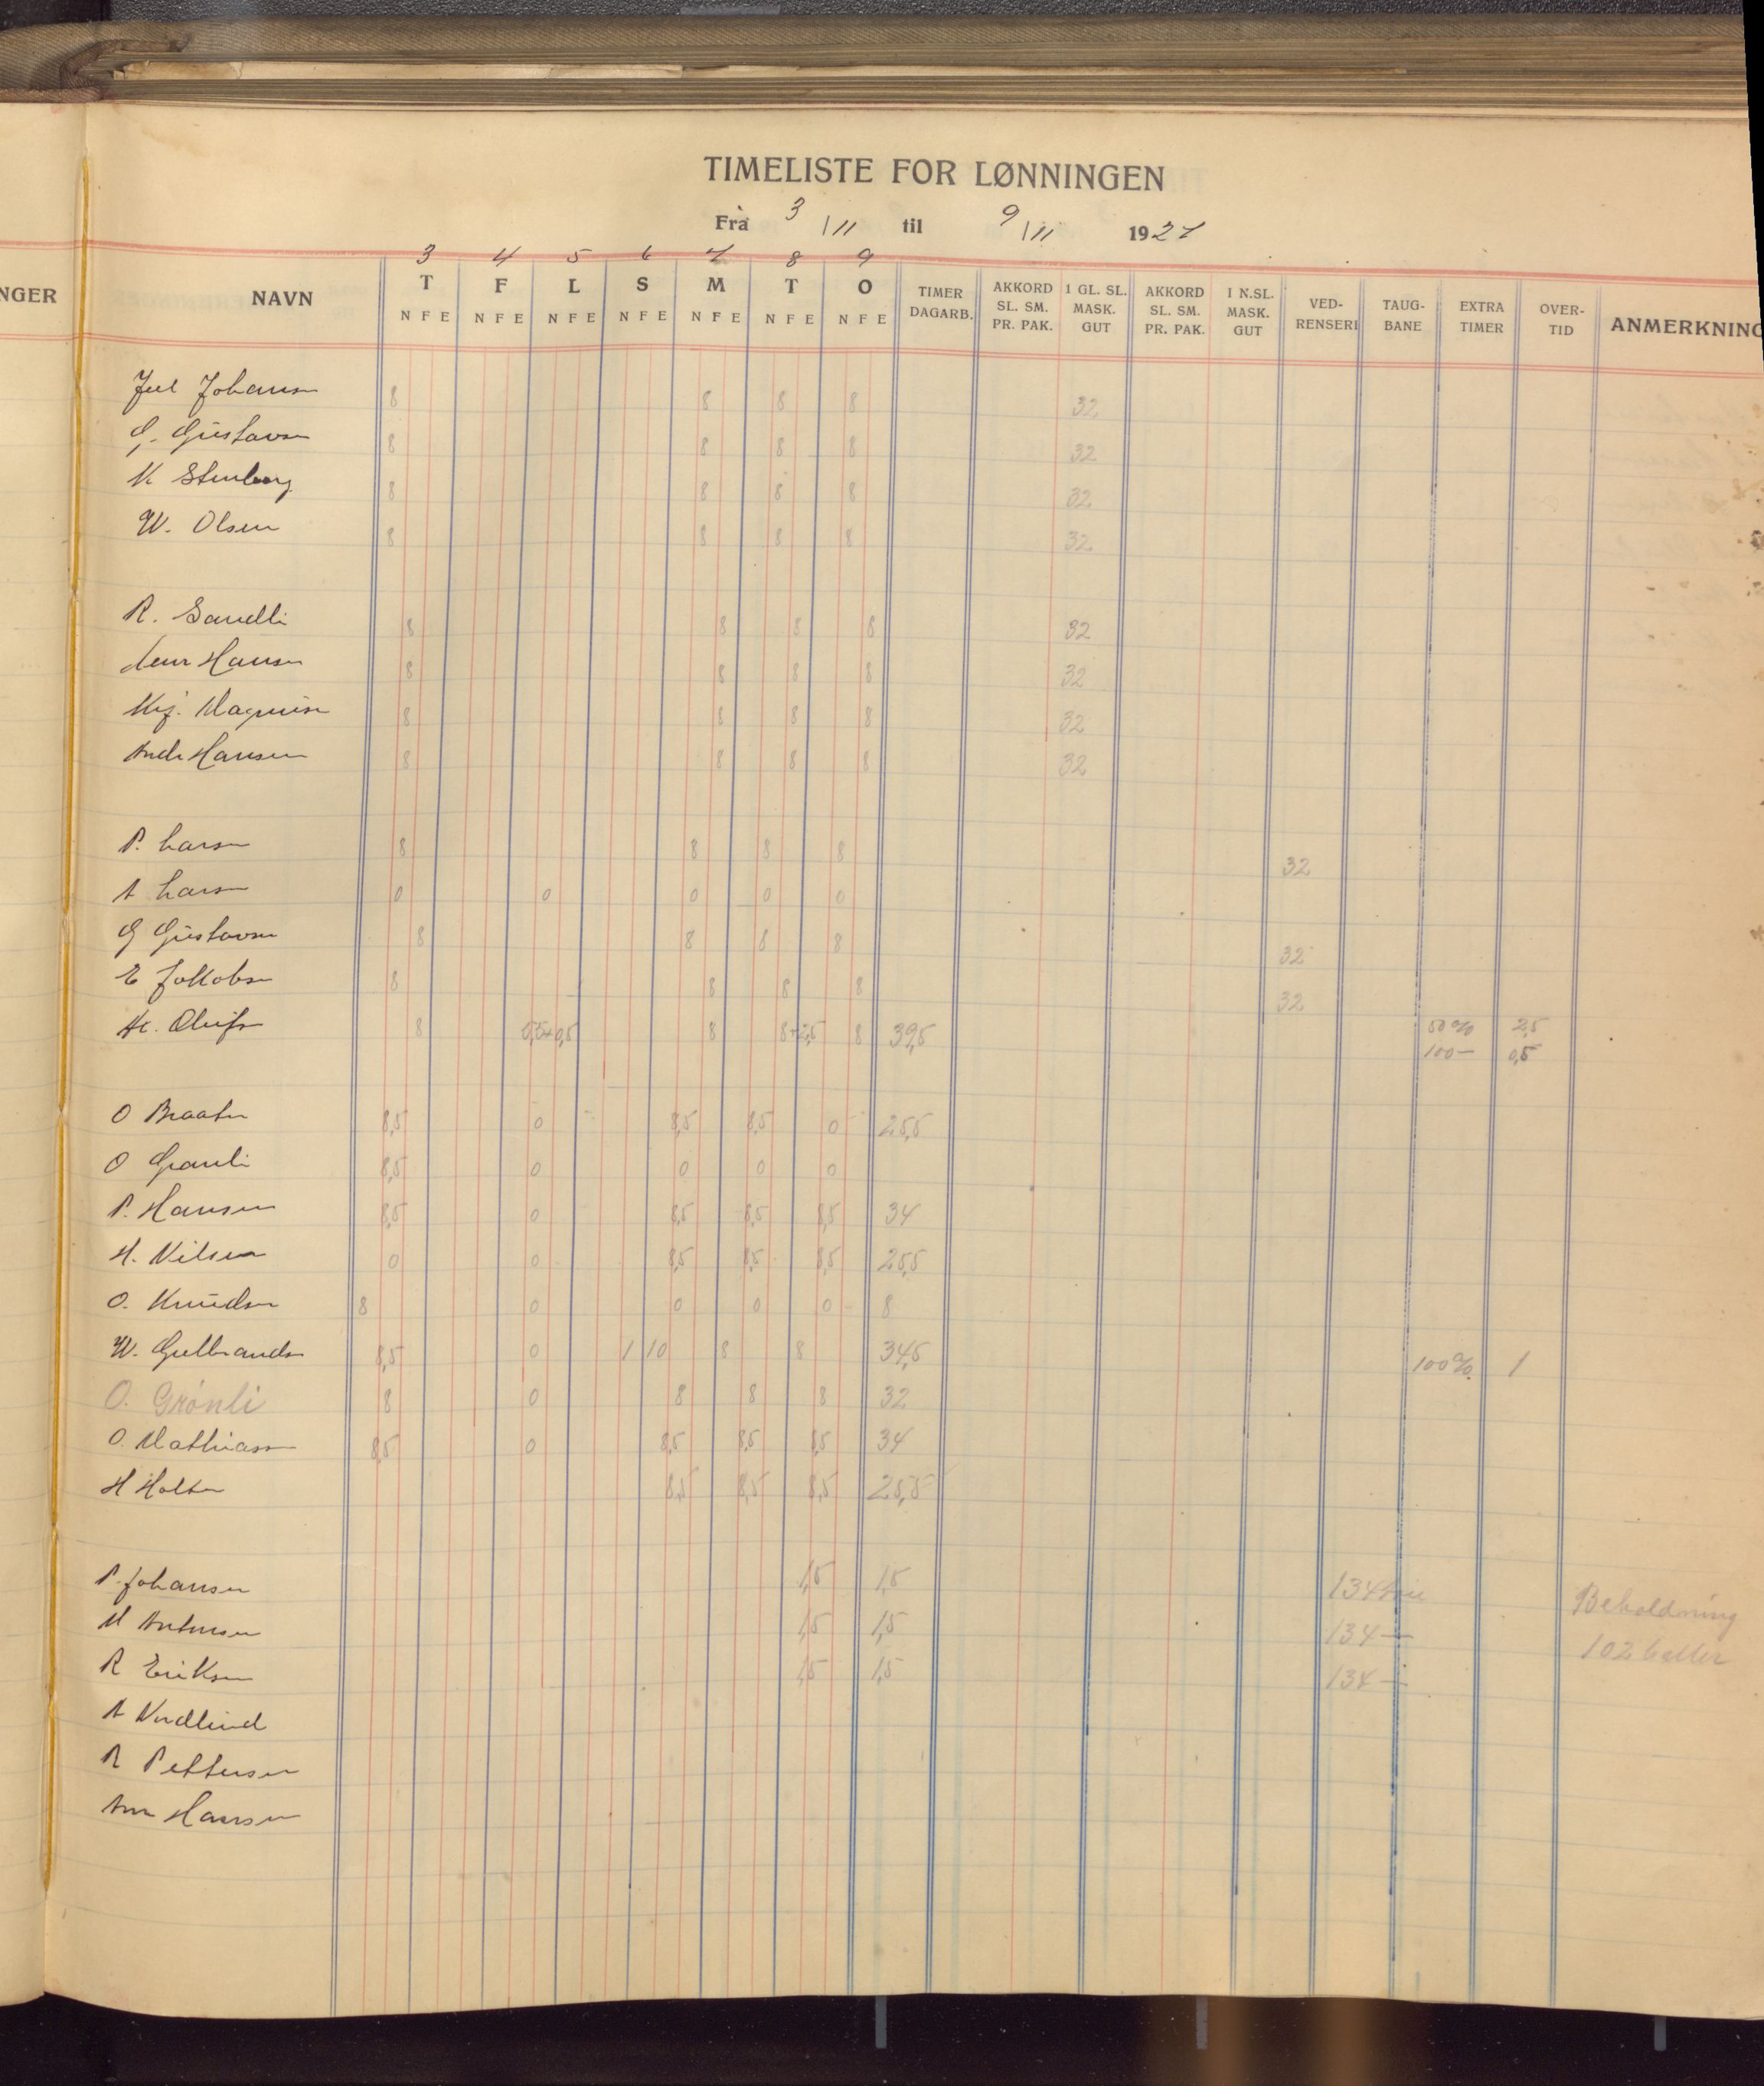 TIMELISTE FOR LØNNINGEN
Fra 3/11 til 9/11 1927
3 4 5 6 7 8 9
NGER NAVN T F L S M T O TIMER DAGARB. AKKORD SL. SM. PR. PAK. 1 GL. SL. MASK. GUT AKKORD SL. SM. PR. PAK. 1 N.SL. MASK. GUT VED-RENSERI TAUG-BANE EXTRA TIMER OVER-TID ANMERKNING
N F E N F E N F E N F E N F E N F E N F E
Juel Johansen 8 8 8 8 32
G. Gustavsen 8 8 8 8 32
K Stenberg 8 8 8 8 32
W. Olsen 8 8 8 8 32
R. Sandli 8 8 8 8 32
Hansen 8 8 8 8 32
Magnusen 8 8 8 8 32
Andr Hansen 8 8 8 8 32
P. Larsen 8 8 8 8 32
A Larsen 0 0 0 0 0
G Gustavsen 8 8 8 8 32
E Jakobsen 8 8 8 8 32
8 8 8+2,5 8 39,5 50% 2,5
100— 0,5
O Braaten 8,5 0 8,5 8,5 0 25,5
O Granli 8,5 0 0 0 0
P. Hansen 8,5 0 8,5 8,5 8,5 34
H. Nilsen 0 0 8,5 8,5 8,5 25,5
O. Knudsen 8 0 0 0 0 8
W. Gulbrands 8,5 0 1 10 8 8 34,5 100% 1
O. Grönli 8 0 8 8 8 32
O. Mathiassen 8,5 0 8,5 8,5 8,5 34
H Holter 8,5 8,5 8,5 25,5
P. Johansen 1,5 1,5 134 Beholdning
M Antonsen 1,5 1,5 134 — 102 baller
R Eriksen 1,5 1,5 134 —
A Nordlund
R Pettersen
Hansen